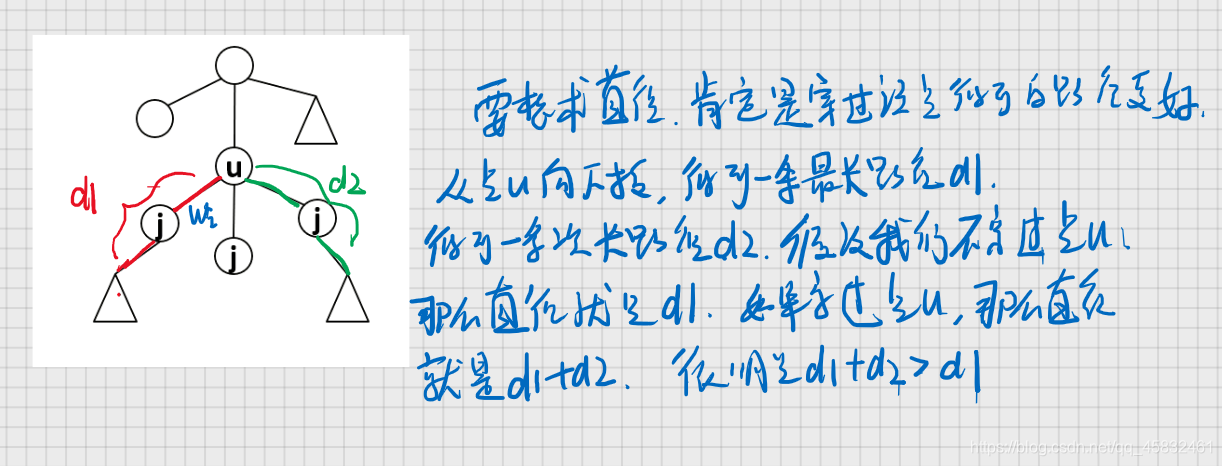 要想求直径.肯定是穿过该点得到的路径更好.
从点u向下找,得到一条最长路径d1.
得到一条次长路径d2.假设我们不穿过点u、
那么直径就是d1.如果穿过点u,那么直径
就是d1+d2.很明显d1+d2>d1
u
d1
d2
j
wi
j
j
https://blog.csdn.net/qq_45832461